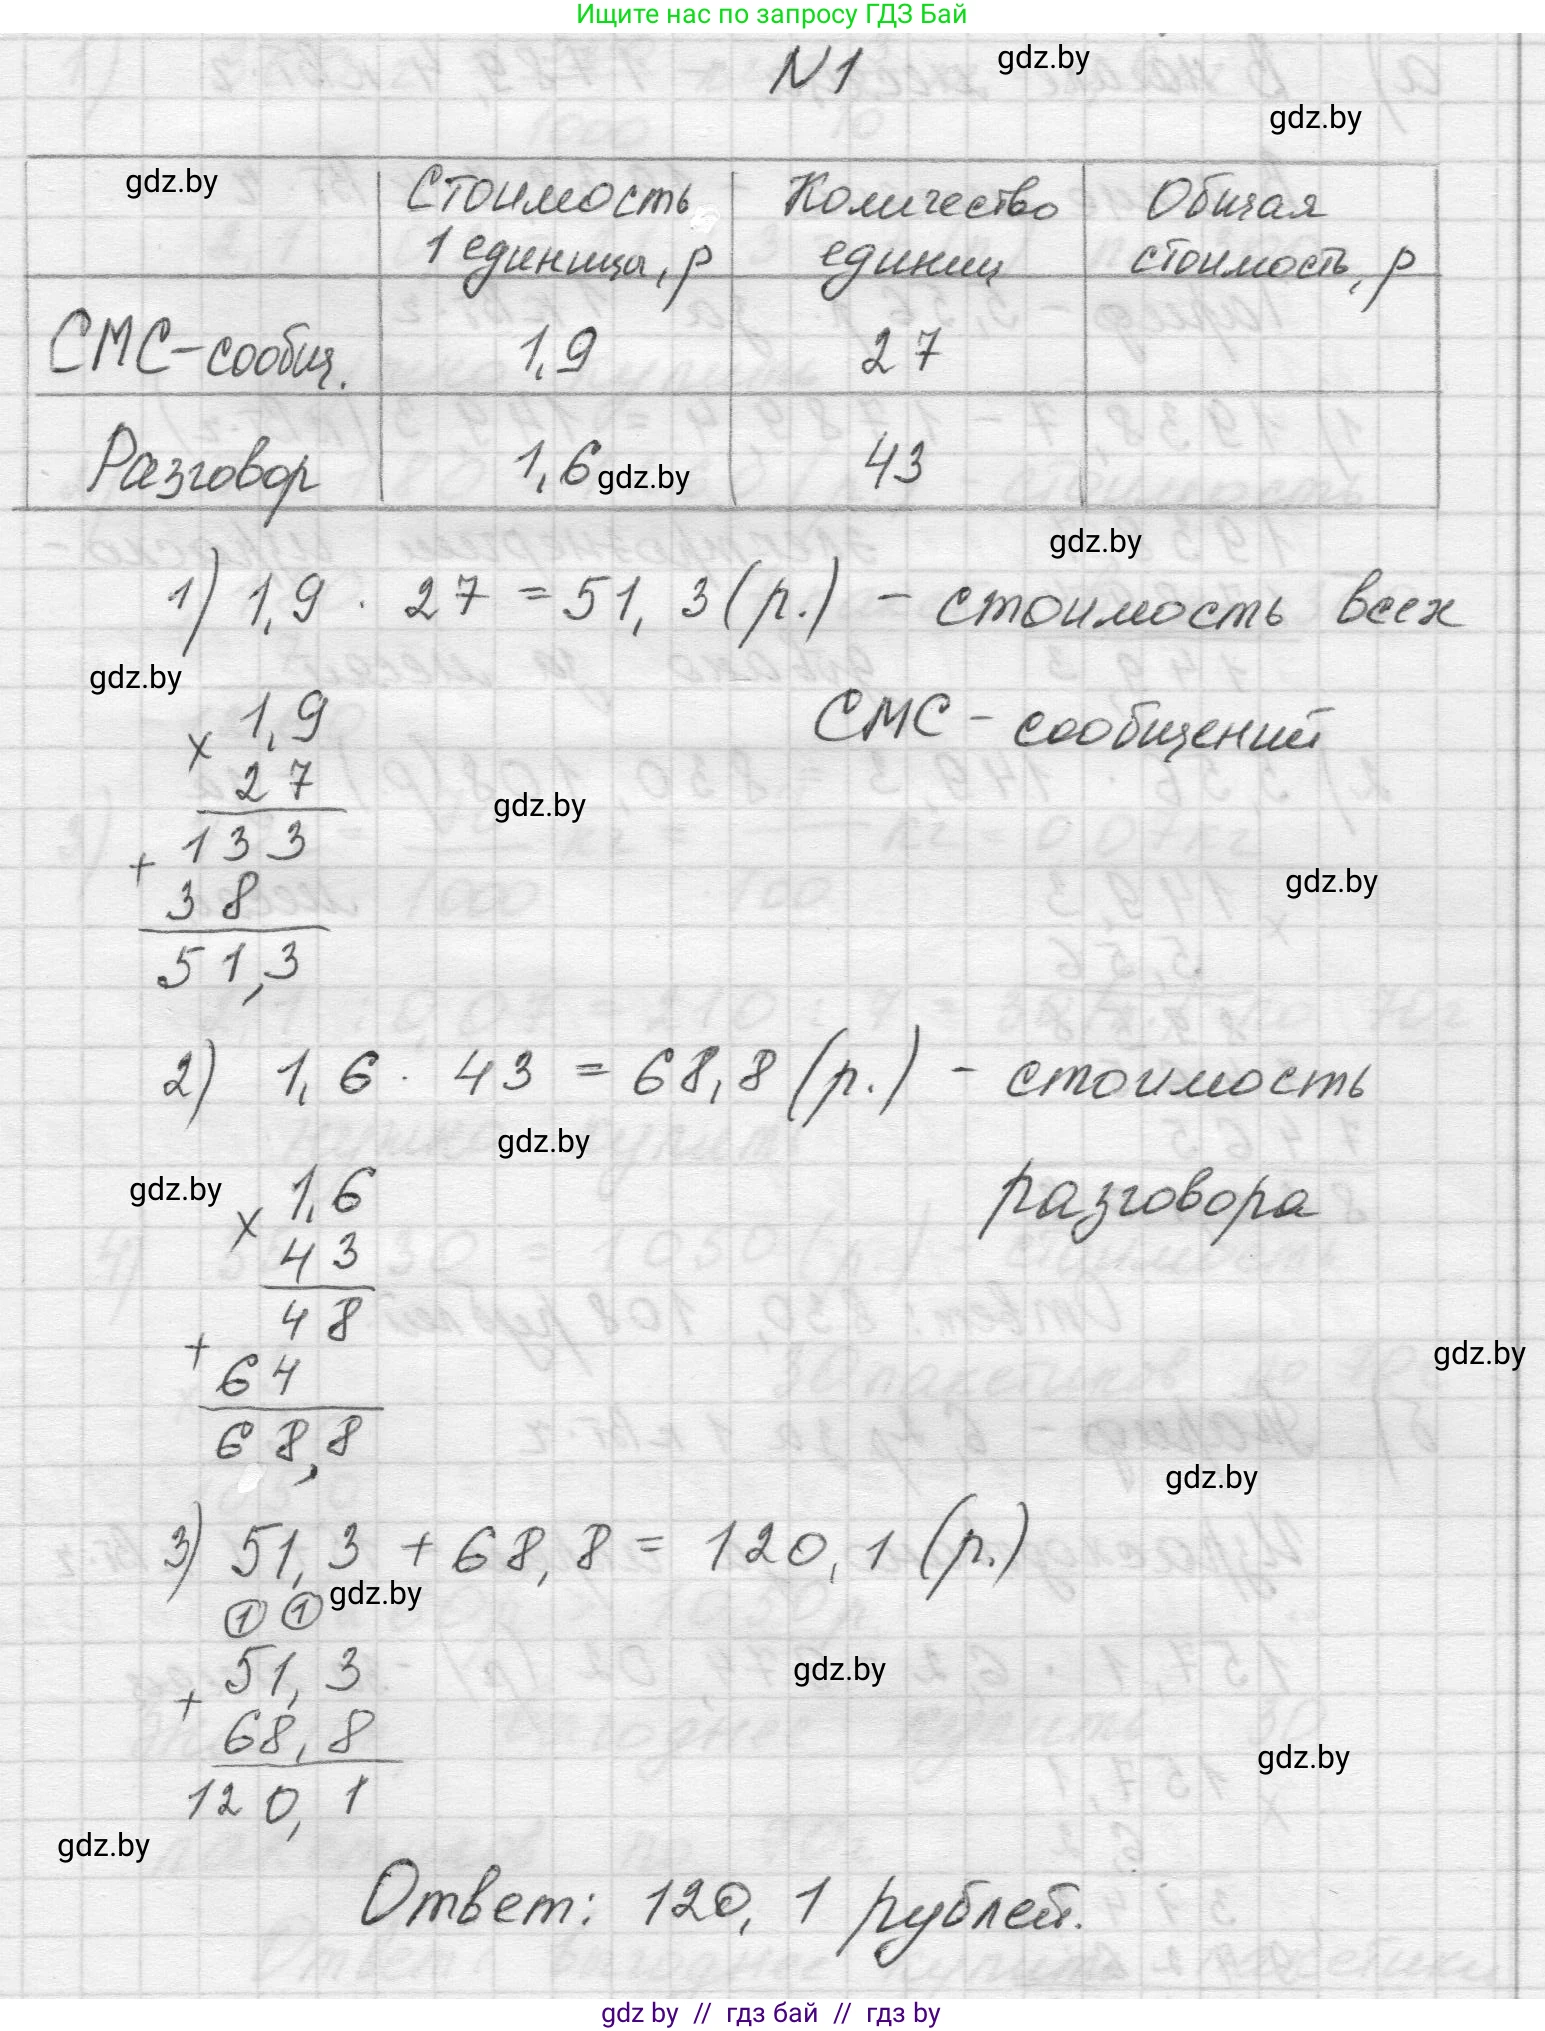 Ищите нас по запросу ГДЗ Бай
N1
gdz.by
gdz.by
gdz.by
Стоимость 1 единицы, р
Количество единиц
Общая стоимость, р
СМС-сообщ. 1,9 27
Разговор 1,6 43
gdz.by
gdz.by
1) 1,9 · 27 = 51,3 (р.) - стоимость всех
gdz.by
СМС - сообщений
× 1,9
27
gdz.by
+ 133
gdz.by
38
51,3
2) 1,6 · 43 = 68,8 (р.) - стоимость
gdz.by
gdz.by
разговора
× 1,6
43
+ 48
gdz.by
64
68,8
gdz.by
3) 51,3 + 68,8 = 120,1 (р.)
gdz.by
1 1
+ 51,3
gdz.by
68,8
gdz.by
120,1
gdz.by
Ответ: 120,1 рублей.
gdz by // гдз бай // гдз by